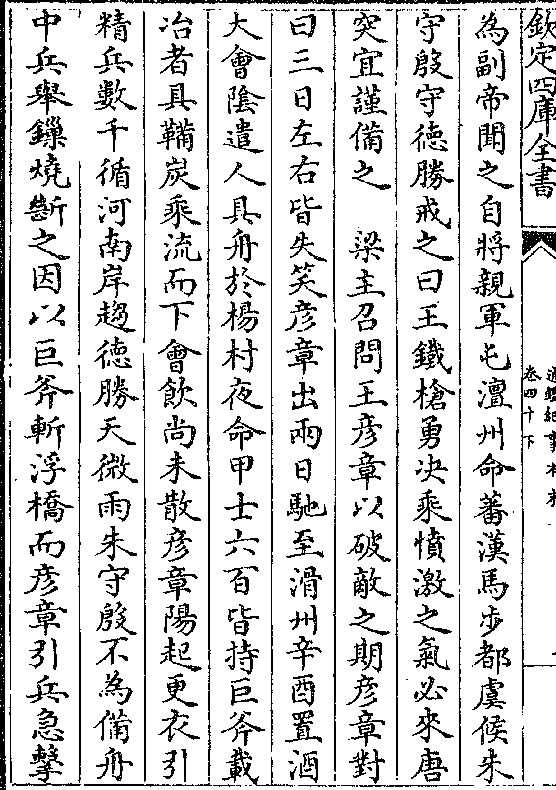 欽定四庫全書
通鑑紀事本末
卷四十下
為副帝聞之自將親軍屯澶州命蕃漢馬步都虞候朱
守殷守德勝戒之曰王鐵槍勇决乗憤激之氣必來唐
突宜謹備之　梁主召問王彦章以破敵之期彦章對
曰三日左右皆失笑彦章出兩日馳至滑州辛酉置酒
大會陰遣人具舟於楊村夜命甲士六百皆持巨斧載
冶者具鞴炭乗流而下會飲尚未散彦章陽起更衣引
精兵數千循河南岸趨德勝天微雨朱守殷不為備舟
中兵舉鏁燒斷之因以巨斧斬浮橋而彦章引兵急擊